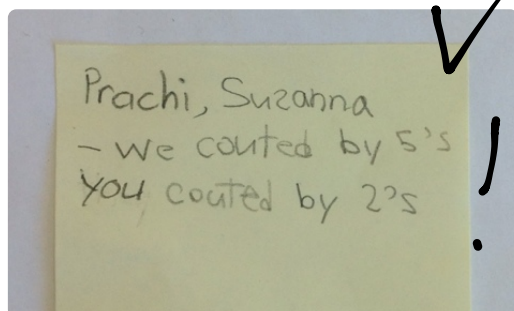 Prachi, Suzanna
- We couted by 5's
you couted by 2's